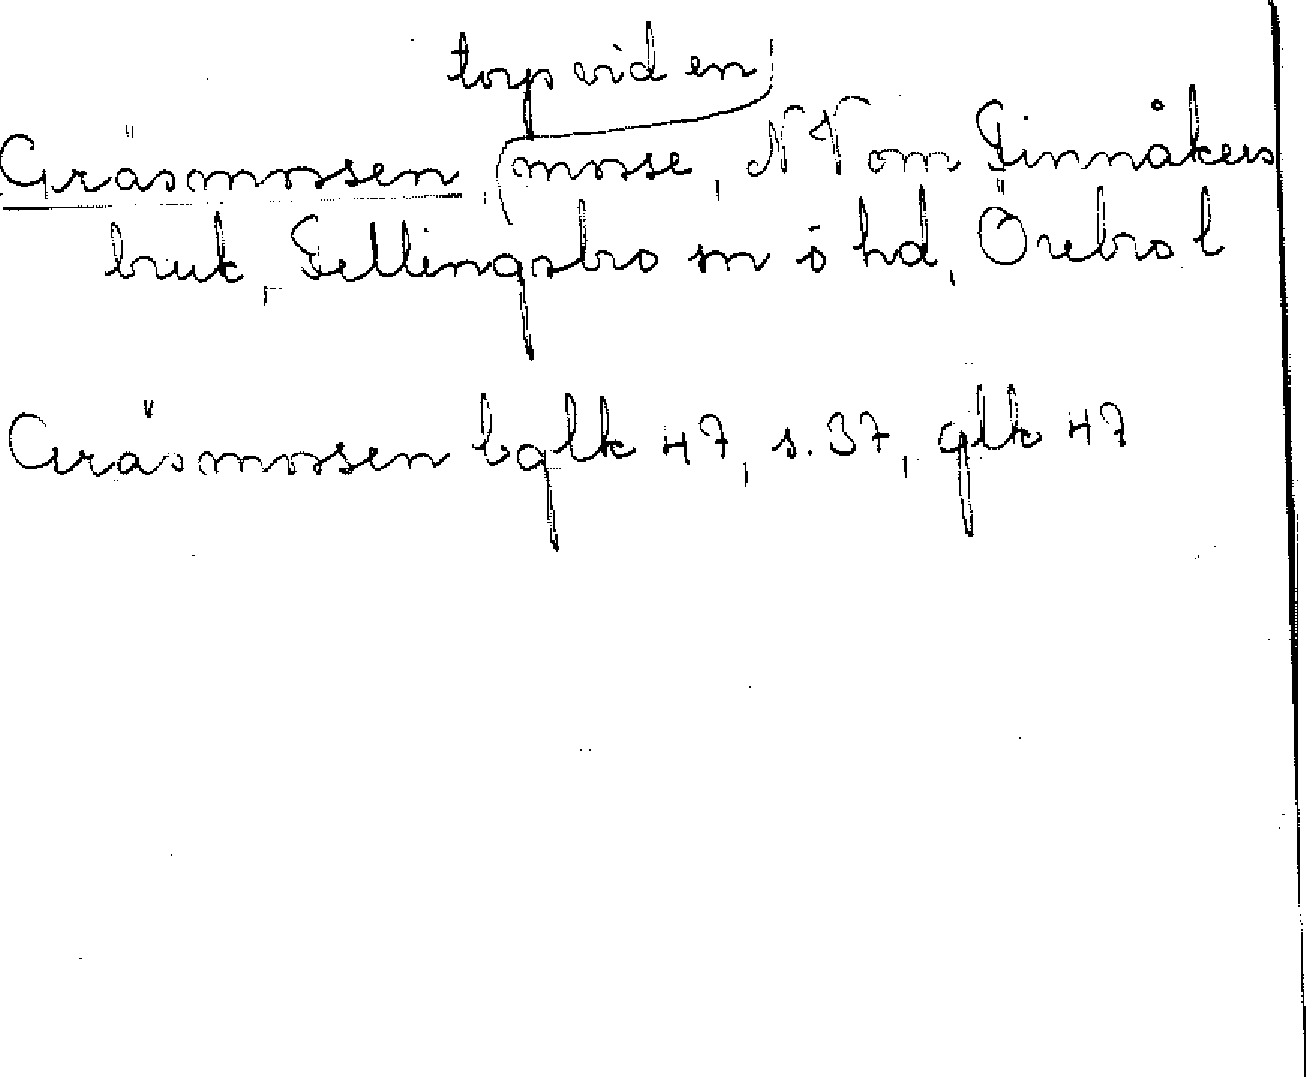 torp vid en
Gräsmossen, mosse, NV om Finnåkers
bruk, Fellingsbro sn o hd, Örebro l
Gräsmossen bglk 47, s. 37, glk 47